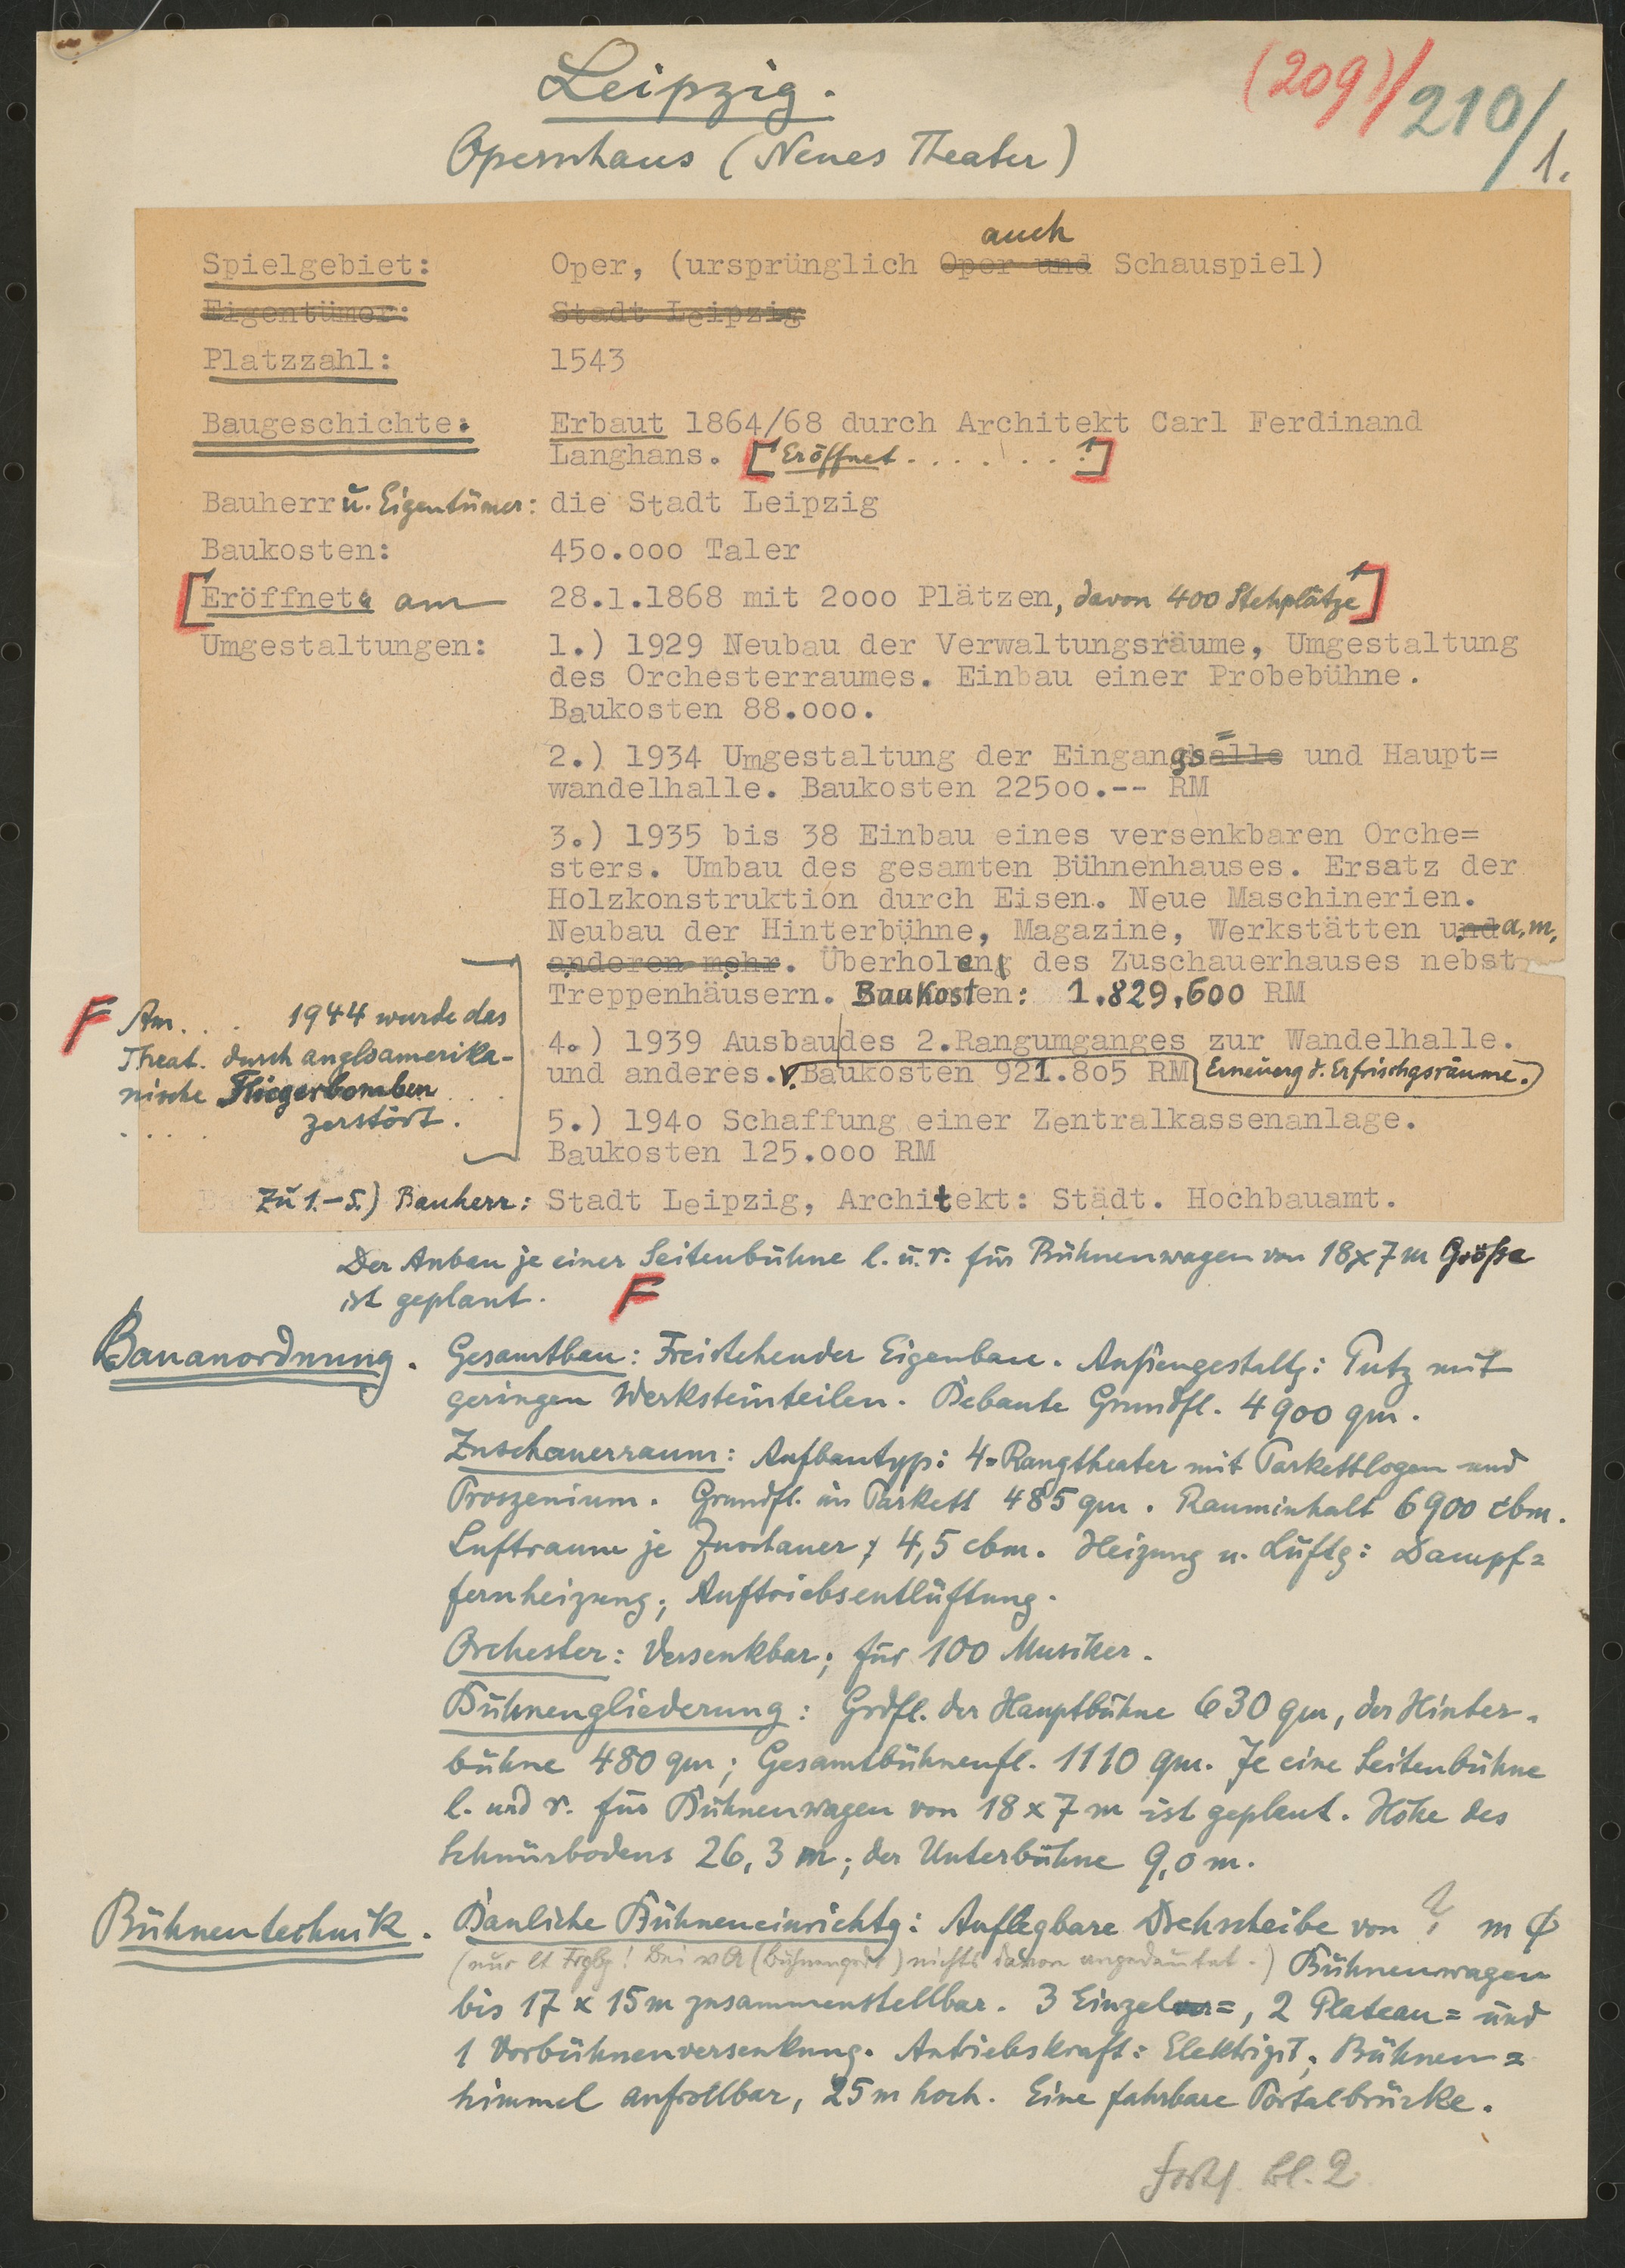 (209)/210/1.
Leipzig.
Opernhaus (Neues Theater)
auch
Spielgebiet: Oper, (ursprünglich Oper und Schauspiel)
Eigentümer: Stadt Leipzig
Platzzahl: 1543
Baugeschichte: Erbaut 1864/68 durch Architekt Carl Ferdinand
Langhans. [Eröffnet . . . . . . . !]
Bauherr u. Eigentümer: die Stadt Leipzig
Baukosten: 450.000 Taler
[Eröffnet am 28.1.1868 mit 2000 Plätzen, davon 400 Stehplätze]
Umgestaltungen: 1.) 1929 Neubau der Verwaltungsräume, Umgestaltung
des Orchesterraumes. Einbau einer Probebühne.
Baukosten 88.000.
2.) 1934 Umgestaltung der Eingangshalle= und Haupt=
wandelhalle. Baukosten 22500.-- RM
3.) 1935 bis 38 Einbau eines versenkbaren Orche=
sters. Umbau des gesamten Bühnenhauses. Ersatz der
Holzkonstruktion durch Eisen. Neue Maschinerien.
Neubau der Hinterbühne, Magazine, Werkstätten und a.m.
anderen mehr. Überholen des Zuschauerhauses nebst
Treppenhäusern. Baukosten: 1.829.600 RM
4.) 1939 Ausbau des 2.Rangumganges zur Wandelhalle.
und anderes. Baukosten 921.805 RM Erneuerg d. Erfrischgsräume.
5.) 1940 Schaffung einer Zentralkassenanlage.
Baukosten 125.000 RM
F Am . . . 1944 wurde das
Theat. durch angloamerika-
nische Fliegerbomben . . .
. . . . zerstört.
Zu 1.-5.) Bauherr: Stadt Leipzig, Architekt: Städt. Hochbauamt.
Der Anbau je einer Seitenbühne l. u. r. für Bühnenwagen von 18x7 m Größe
ist geplant. F
Bauanordnung. Gesamtbau: Freistehender Eigenbau. Außengestaltg: Putz mit
geringen Werksteinteilen. Bebaute Grundfl. 4900 qm.
Zuschauerraum: Aufbautyp: 4-Rangtheater mit Parkettlogen und
Proszenium. Grundfl. im Parkett 485 qm. Rauminhalt 6900 cbm.
Luftraum je Zuschauer 4,5 cbm. Heizung u. Lüftg: Dampf=
fernheizung; Auftriebsentlüftung.
Orchester: Versenkbar; für 100 Musiker.
Bühnengliederung: Grdfl. der Hauptbühne 630 qm, der Hinter-
bühne 480 qm; Gesamtbühnenfl. 1110 qm. Je eine Seitenbühne
l. und r. für Bühnenwagen von 18 x 7 m ist geplant. Höhe des
Schnürbodens 26,3 m; der Unterbühne 9,0 m.
Bühnentechnik. Bauliche Bühneneinrichtg: Auflegbare Drehscheibe von ? m ϕ
(nur lt Frgbg! Bei nichts davon angedeutet.) Bühnenwagen
bis 17 x 15 m zusammenstellbar. 3 Einzel=, 2 Plateau= und
1 Vorbühnenversenkung. Antriebskraft: Elektrizit; Bühnen=
himmel aufrollbar, 25 m hoch. Eine fahrbare Portalbrücke.
Forts. Bl. 2